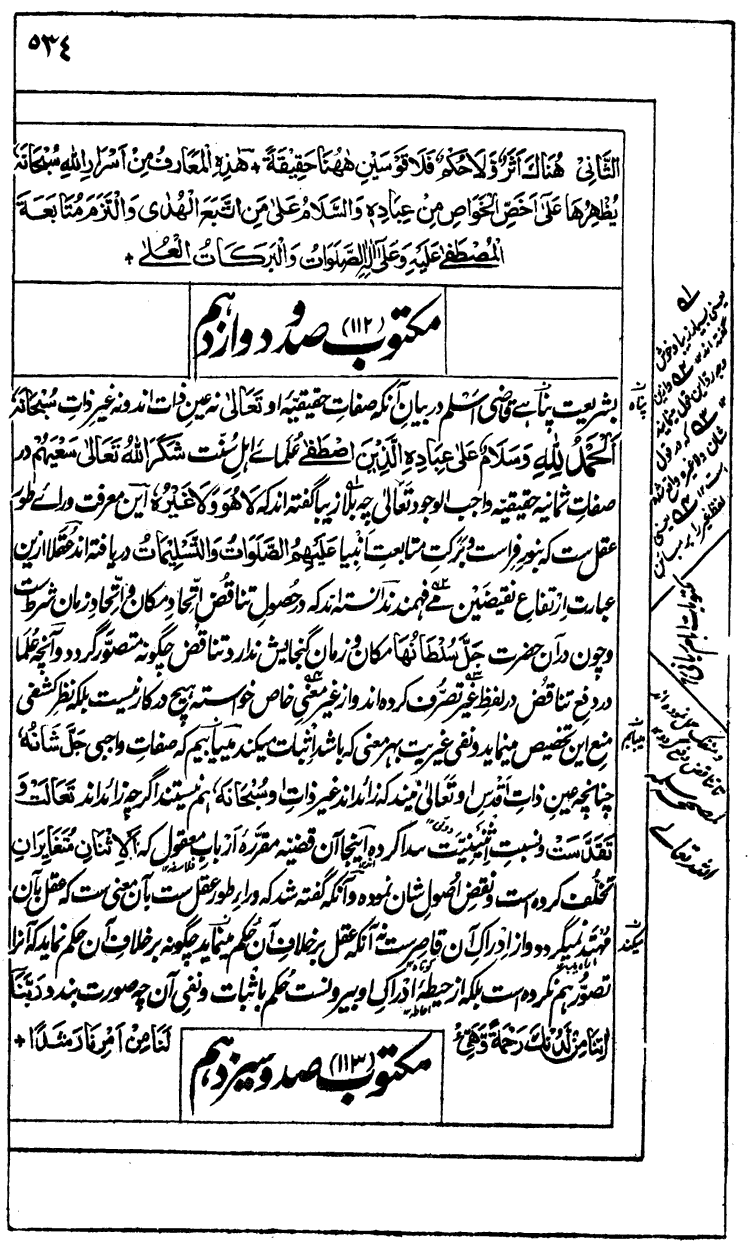 ٥٣٤
الثَّانِيْ هُنَاكَ اَثَرٌ وَّلَا حُكْمٌ فَلَا قَوْسَيْنِ هٰهُنَا حَقِيْقَةً + هٰذِهِ الْمَعَارِفُ مِنْ اَسْرَارِ اللهِ سُبْحَانَهٗ
يُظْهِرُهَا عَلٰى اَخَصِّ الْخَوَاصِ مِنْ عِبَادِهٖ وَالسَّلَامُ عَلٰى مَنِ اتَّبَعَ الْهُدٰى وَالْتَزَمَ مُتَابَعَةَ
الْمُصْطَفٰى عَلَيْهِ وَعَلٰى اٰلِهِ الصَّلَوَاتُ وَالْبَرَكَاتُ الْعُلٰى +
مکتوب (۱۱۲) صد و دوازدهم
بشریعت پناہے قاضی اسلم در بیان آنکہ صفاتِ حقیقیہٗ او تعالیٰ نہ عینِ ذات اند و نہ غیرِ ذاتِ سُبْحَانَهٗ
اَلْحَمْدُ لِلّٰهِ وَسَلَامٌ عَلٰى عِبَادِهِ الَّذِيْنَ اصْطَفٰى عُلمائے اہلِ سنّت شَكَرَ اللهُ تَعَالٰى سَعْيَهُمْ در
صفاتِ ثمانیہ حقیقیہ واجب الوجود تعالیٰ چہ بلا زیبا گفتہ اند کہ لَا هُوَ وَلَا غَيْرُهٗ این معرفت ورائے طورِ
عقل ست کہ بنورِ فراست و برکتِ متابعتِ انبیا عَلَيْهِمُ الصَّلَوَاتُ وَالتَّسْلِيْمَاتُ دریافتہ اند عقلا ازین
عبارت ارتفاعِ نقیضین مے فہمند ندانستہ اند کہ در حصولِ تناقض اتّحادِ مکان و اتّحادِ زمان شرط ست
و چون در آن حضرت جَلَّ سُلْطَانُهَا مکان و زمان گنجایش ندارد تناقض چگونہ متصوّر گردد و آنچہ علما
در دفعِ تناقض در لفظِ غیر تصرّف کردہ اند و از غیر معنیِ خاص خواستہ ہیچ در کار نیست بلکہ نظرِ کشفی
منع این تخصیص مینماید و نفی غیریت بہر معنی کہ باشد اثبات میکند مییابیم کہ صفاتِ واجبی جَلَّ شَانُهٗ
چنانچہ عین ذاتِ اقدس او تعالیٰ نیند کہ زائد اند غیر ذاتِ او سُبْحَانَهٗ ہم نیستند اگرچہ زائد اند تَعَالَتْ وَ
تَقَدَّسَتْ و نسبتِ اثنینیّت پیدا کردہ اینجا آن قضیہ مقرّرہ اربابِ معقول کہ اَلْاِثْنَانِ مُتَغَايِرَانِ
تخلّف کردہ است و نقضِ اصولِ شان نمودہ و آنکہ گفتہ شد کہ وراءِ طورِ عقل ست بآن معنی ست کہ عقل بآن
مہتدی نمیگردد و از ادراکِ آن قاصر ست نہ آنکہ عقل بر خلافِ آن حکم مینماید چگونہ بر خلافِ آن حکم نماید کہ آنرا
تصوّر ہم نکردہ است بلکہ از حیطۂ ادراکِ او بیرونست حکم باثبات و نفیِ آن چہ صورت بندد رَبَّنَا
اٰتِنَا مِنْ لَّدُنْكَ رَحْمَةً وَّهَيِّئْ لَنَا مِنْ اَمْرِنَا رَشَدًا +
مکتوب (۱۱۳) صد و سیزدهم
پناہ
مییابیم
میکند
یعنی بسیار زیبا و خوش
گفتہ اند ۱۲
مکتوبات امام ربانی
اللہ تعالےٰ